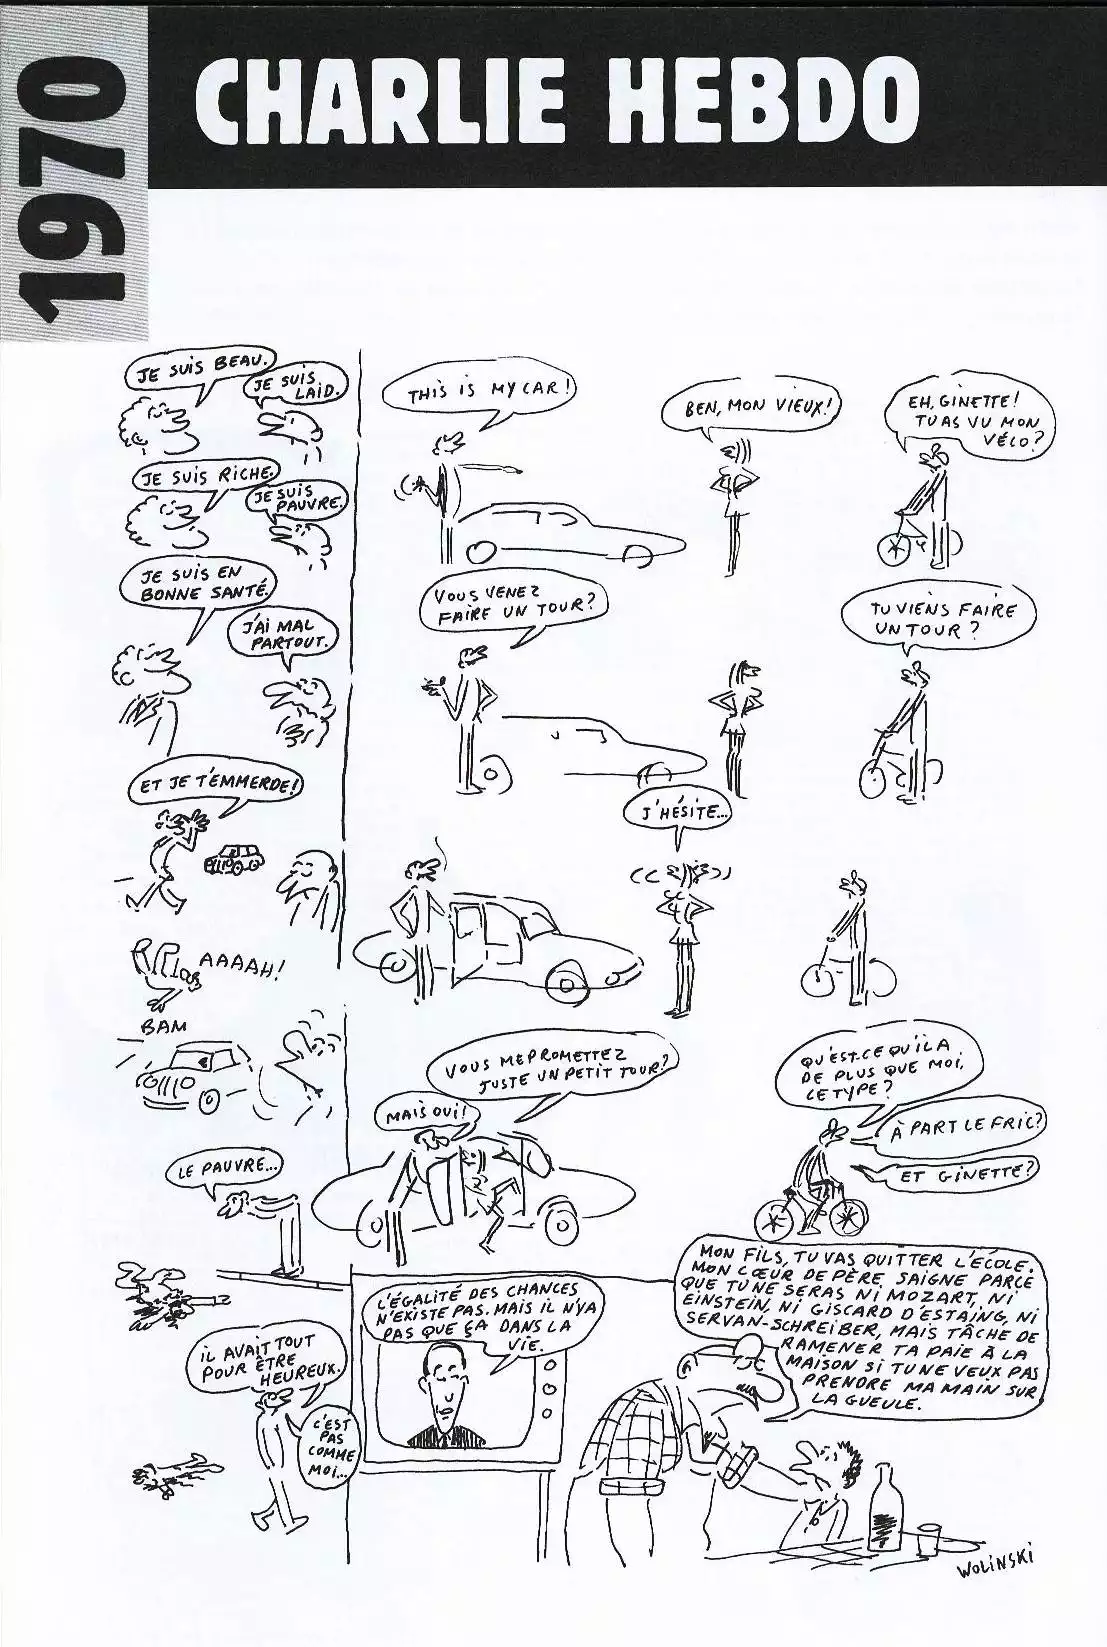 1970
CHARLIE HEBDO
JE SUIS BEAU.
JE SUIS
LAID.
JE SUIS RICHE.
JE SUIS
PAUVRE.
JE SUIS EN
BONNE SANTÉ.
J'AI MAL
PARTOUT.
ET JE T'EMMERDE!
AAAAH!
BAM
LE PAUVRE...
IL AVAIT TOUT
POUR ÊTRE
HEUREUX.
C'EST
PAS
COMME
MOI...
THIS IS MY CAR!
BEN, MON VIEUX!
EH, GINETTE!
TU AS VU MON
VÉLO?
VOUS VENEZ
FAIRE UN TOUR?
TU VIENS FAIRE
UN TOUR?
J'HÉSITE...
VOUS ME PROMETTEZ
JUSTE UN PETIT TOUR?
MAIS OUI!
QU'EST-CE QU'IL A
DE PLUS QUE MOI,
CE TYPE?
À PART LE FRIC?
ET GINETTE?
L'ÉGALITÉ DES CHANCES
N'EXISTE PAS. MAIS IL N'Y A
PAS QUE ÇA DANS LA
VIE.
MON FILS, TU VAS QUITTER L'ÉCOLE.
MON CŒUR DE PÈRE SAIGNE PARCE
QUE TU NE SERAS NI MOZART, NI
EINSTEIN, NI GISCARD D'ESTAING, NI
SERVAN-SCHREIBER, MAIS TÂCHE DE
RAMENER TA PAIE À LA
MAISON SI TU NE VEUX PAS
PRENDRE MA MAIN SUR
LA GUEULE.
WOLINSKI